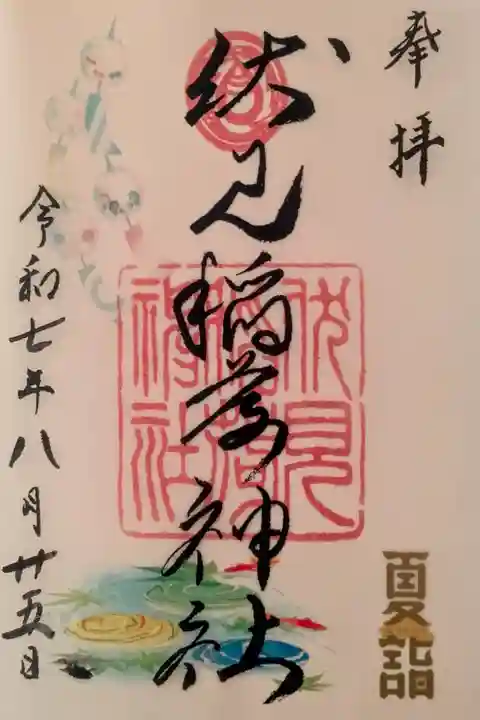 奉拝
伏見稲荷神社
伏見稲荷神社
令和七年八月廿五日
夏詣